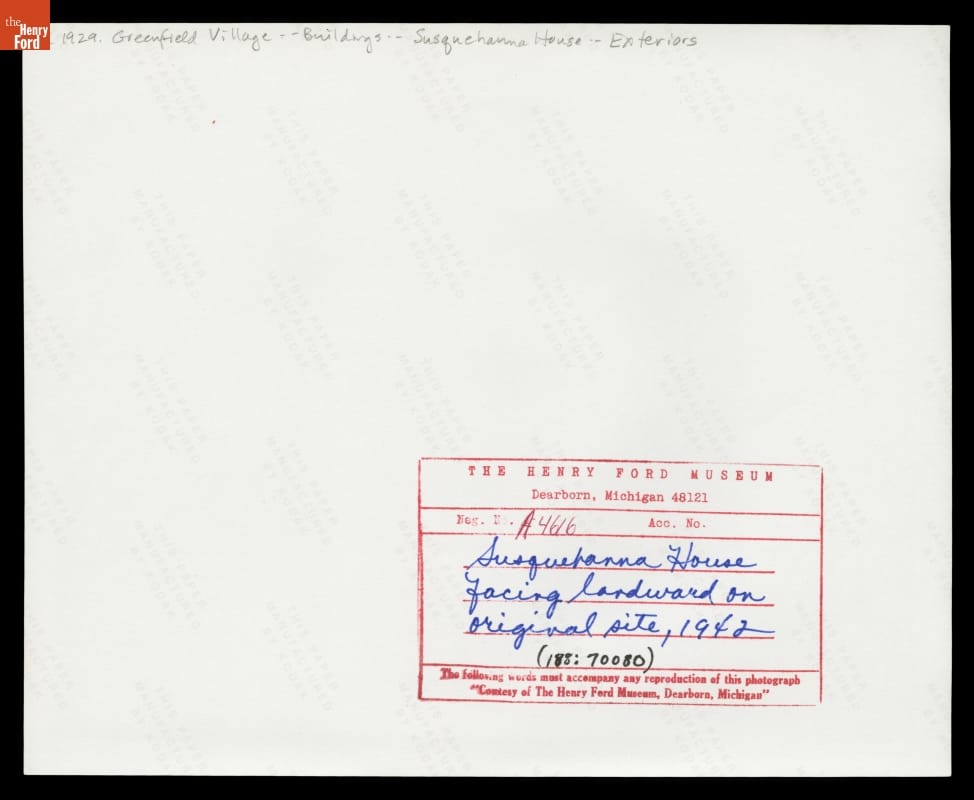 the
Henry
Ford
1929. Greenfield Village -- Buildings -- Susquehanna House -- Exteriors
THIS PAPER
MANUFACTURED
BY KODAK
THE HENRY FORD MUSEUM
Dearborn, Michigan 48121
Neg. No. A4616 Acc. No.
Susquehanna House
facing landward on
original site, 1942
(188: 70080)
The following words must accompany any reproduction of this photograph
"Courtesy of The Henry Ford Museum, Dearborn, Michigan"